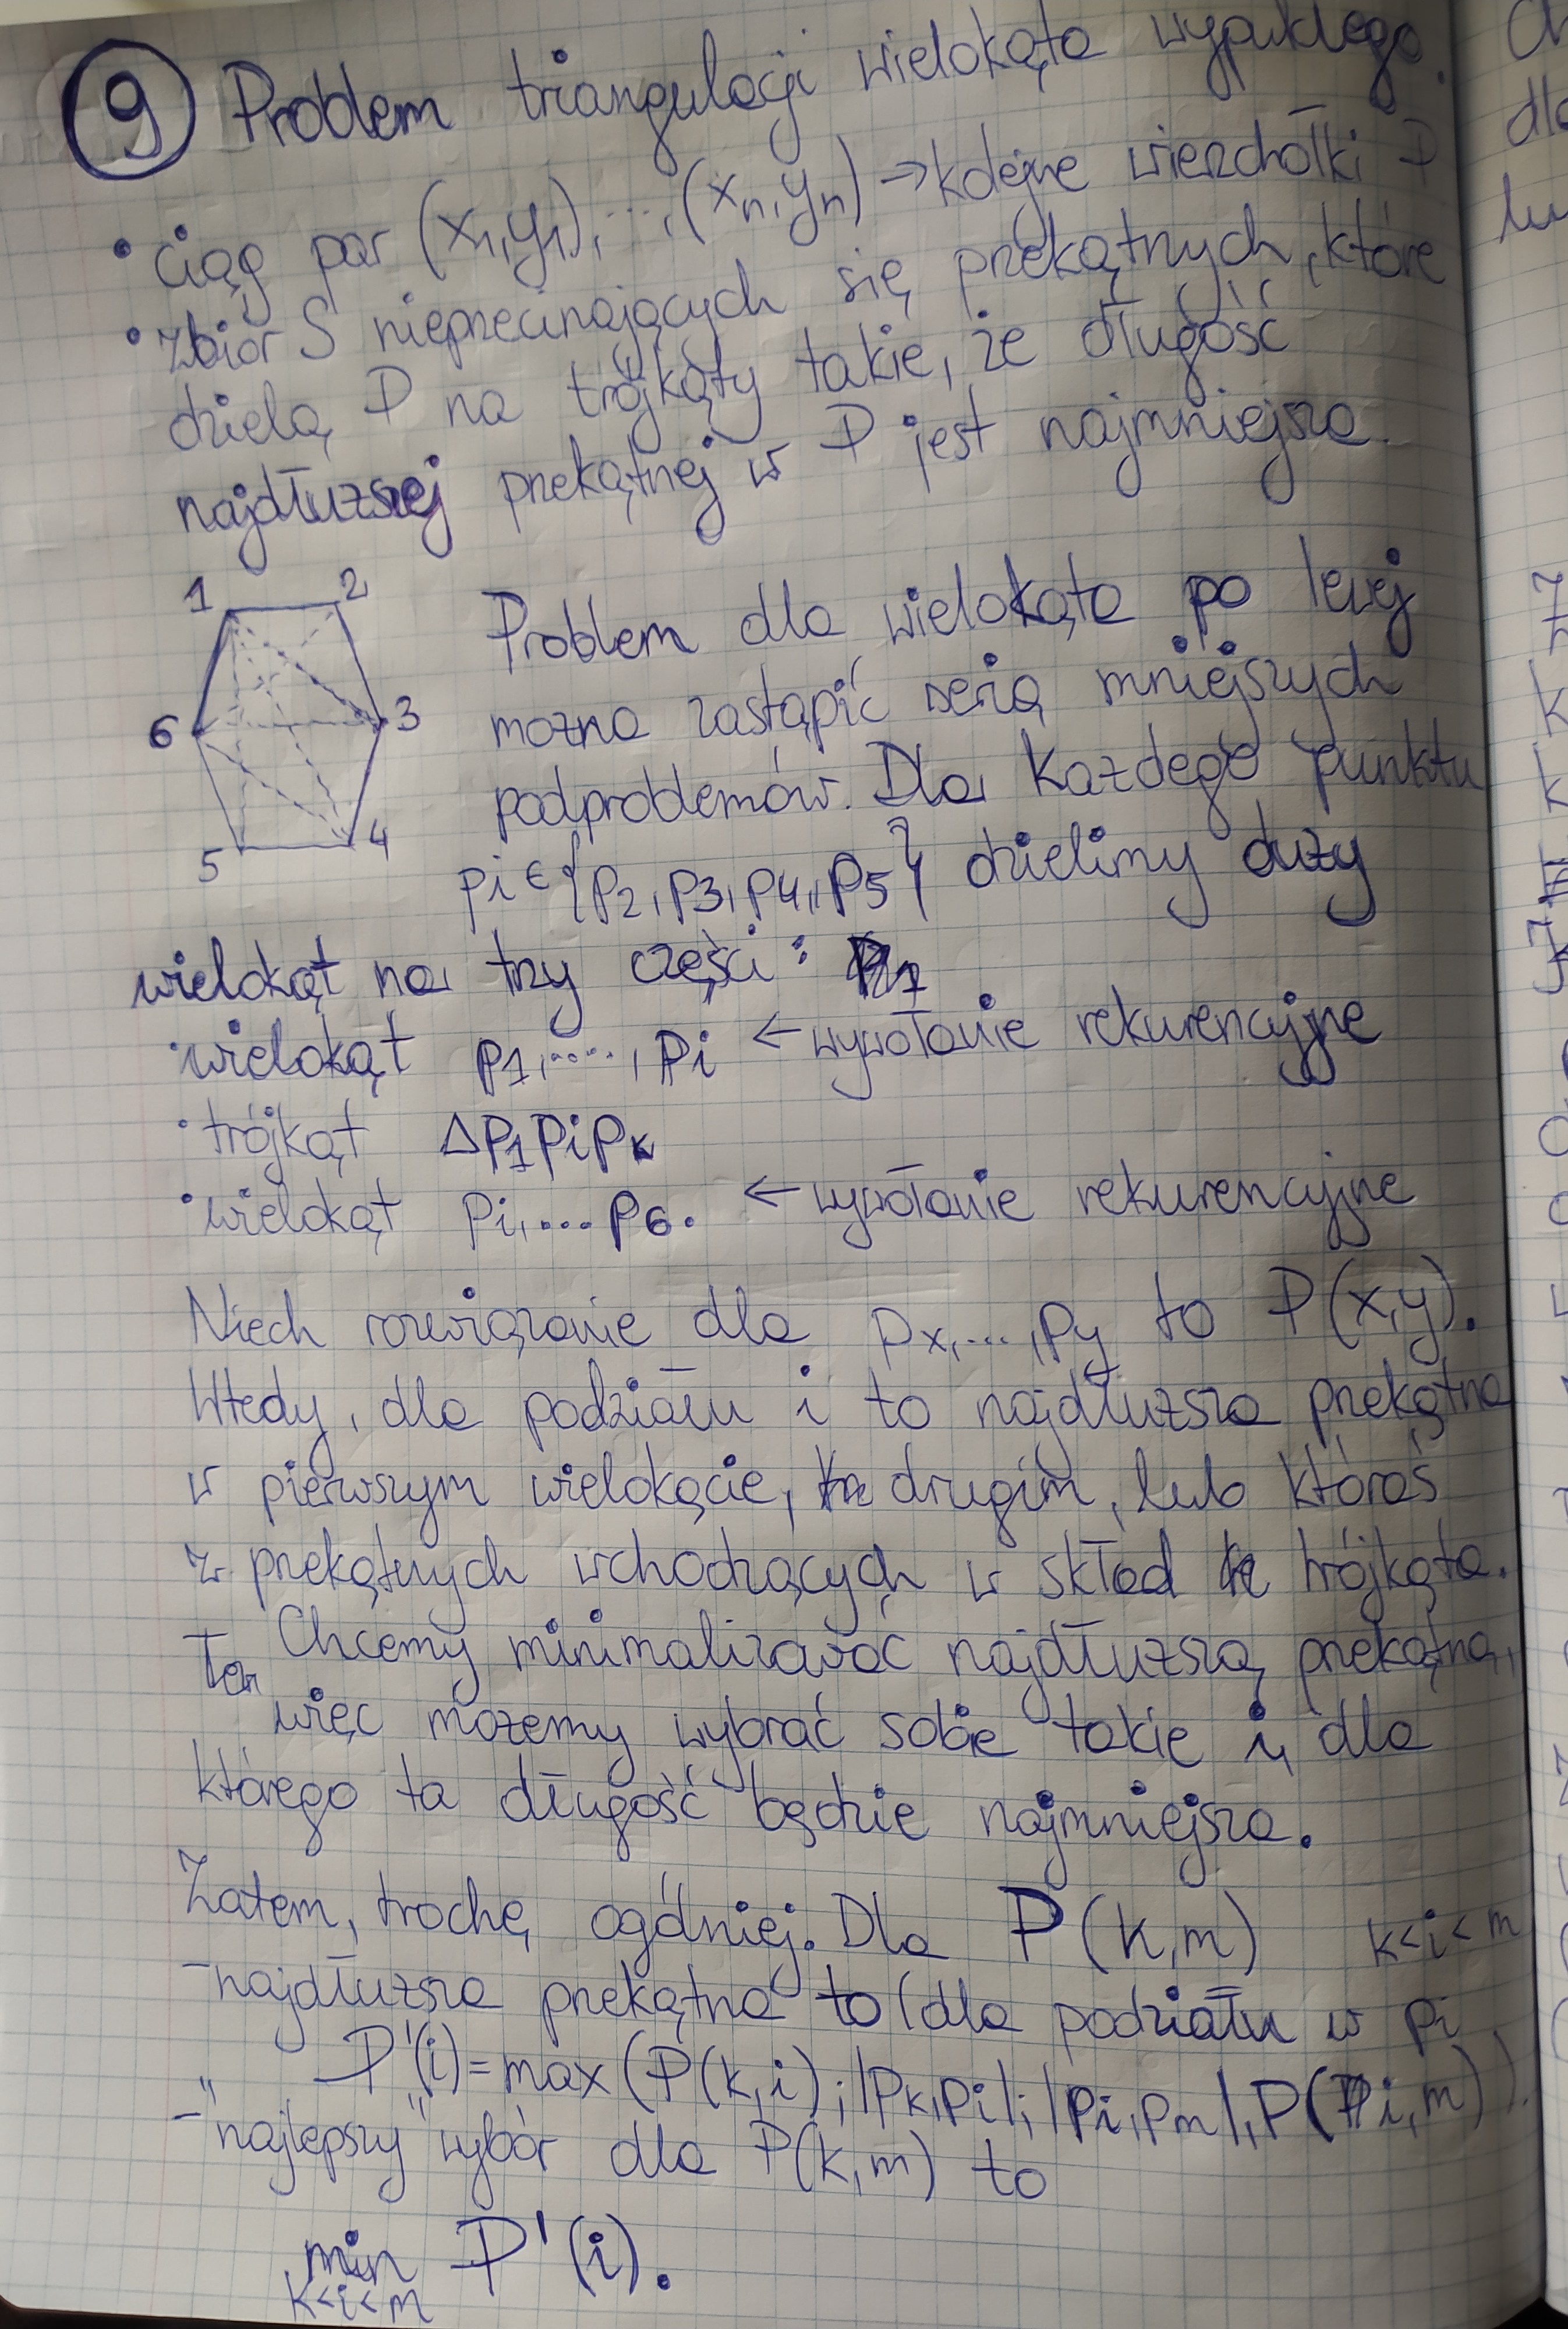 9 Problem triangulacji wielokąta wypukłego.
• ciąg par (x1,y1),...,(xn,yn) → kolejne wierzchołki P
• zbiór S nieprzecinających się przekątnych, które
dzielą P na trójkąty takie, że długość
najdłuższej przekątnej w P jest najmniejsza.
1 2
6 3
5 4
Problem dla wielokąta po lewej
można zastąpić serią mniejszych
podproblemów. Dla każdego punktu
pi ∈ {p2, p3, p4, p5} dzielimy duży
wielokąt na trzy części:
• wielokąt p1,....., pi ← wywołanie rekurencyjne
• trójkąt Δp1pipk
• wielokąt pi,... p6. ← wywołanie rekurencyjne
Niech rozwiązanie dla px,...,py to P(x,y).
Wtedy, dla podziału i to najdłuższa przekątna
w pierwszym wielokącie, drugim, lub któraś
z przekątnych wchodzących w skład trójkąta.
Ta Chcemy minimalizować najdłuższą przekątną,
więc możemy wybrać sobie takie i, dla
którego ta długość będzie najmniejsza.
Zatem, trochę ogólniej. Dla P(k,m) k<i<m
- najdłuższa przekątna to (dla podziału w pi)
P'(i) = max(P(k,i); |pk,pi|; |pi,pm|, P(i,m)).
- "najlepszy" wybór dla P(k,m) to
min P'(i).
k<i<m